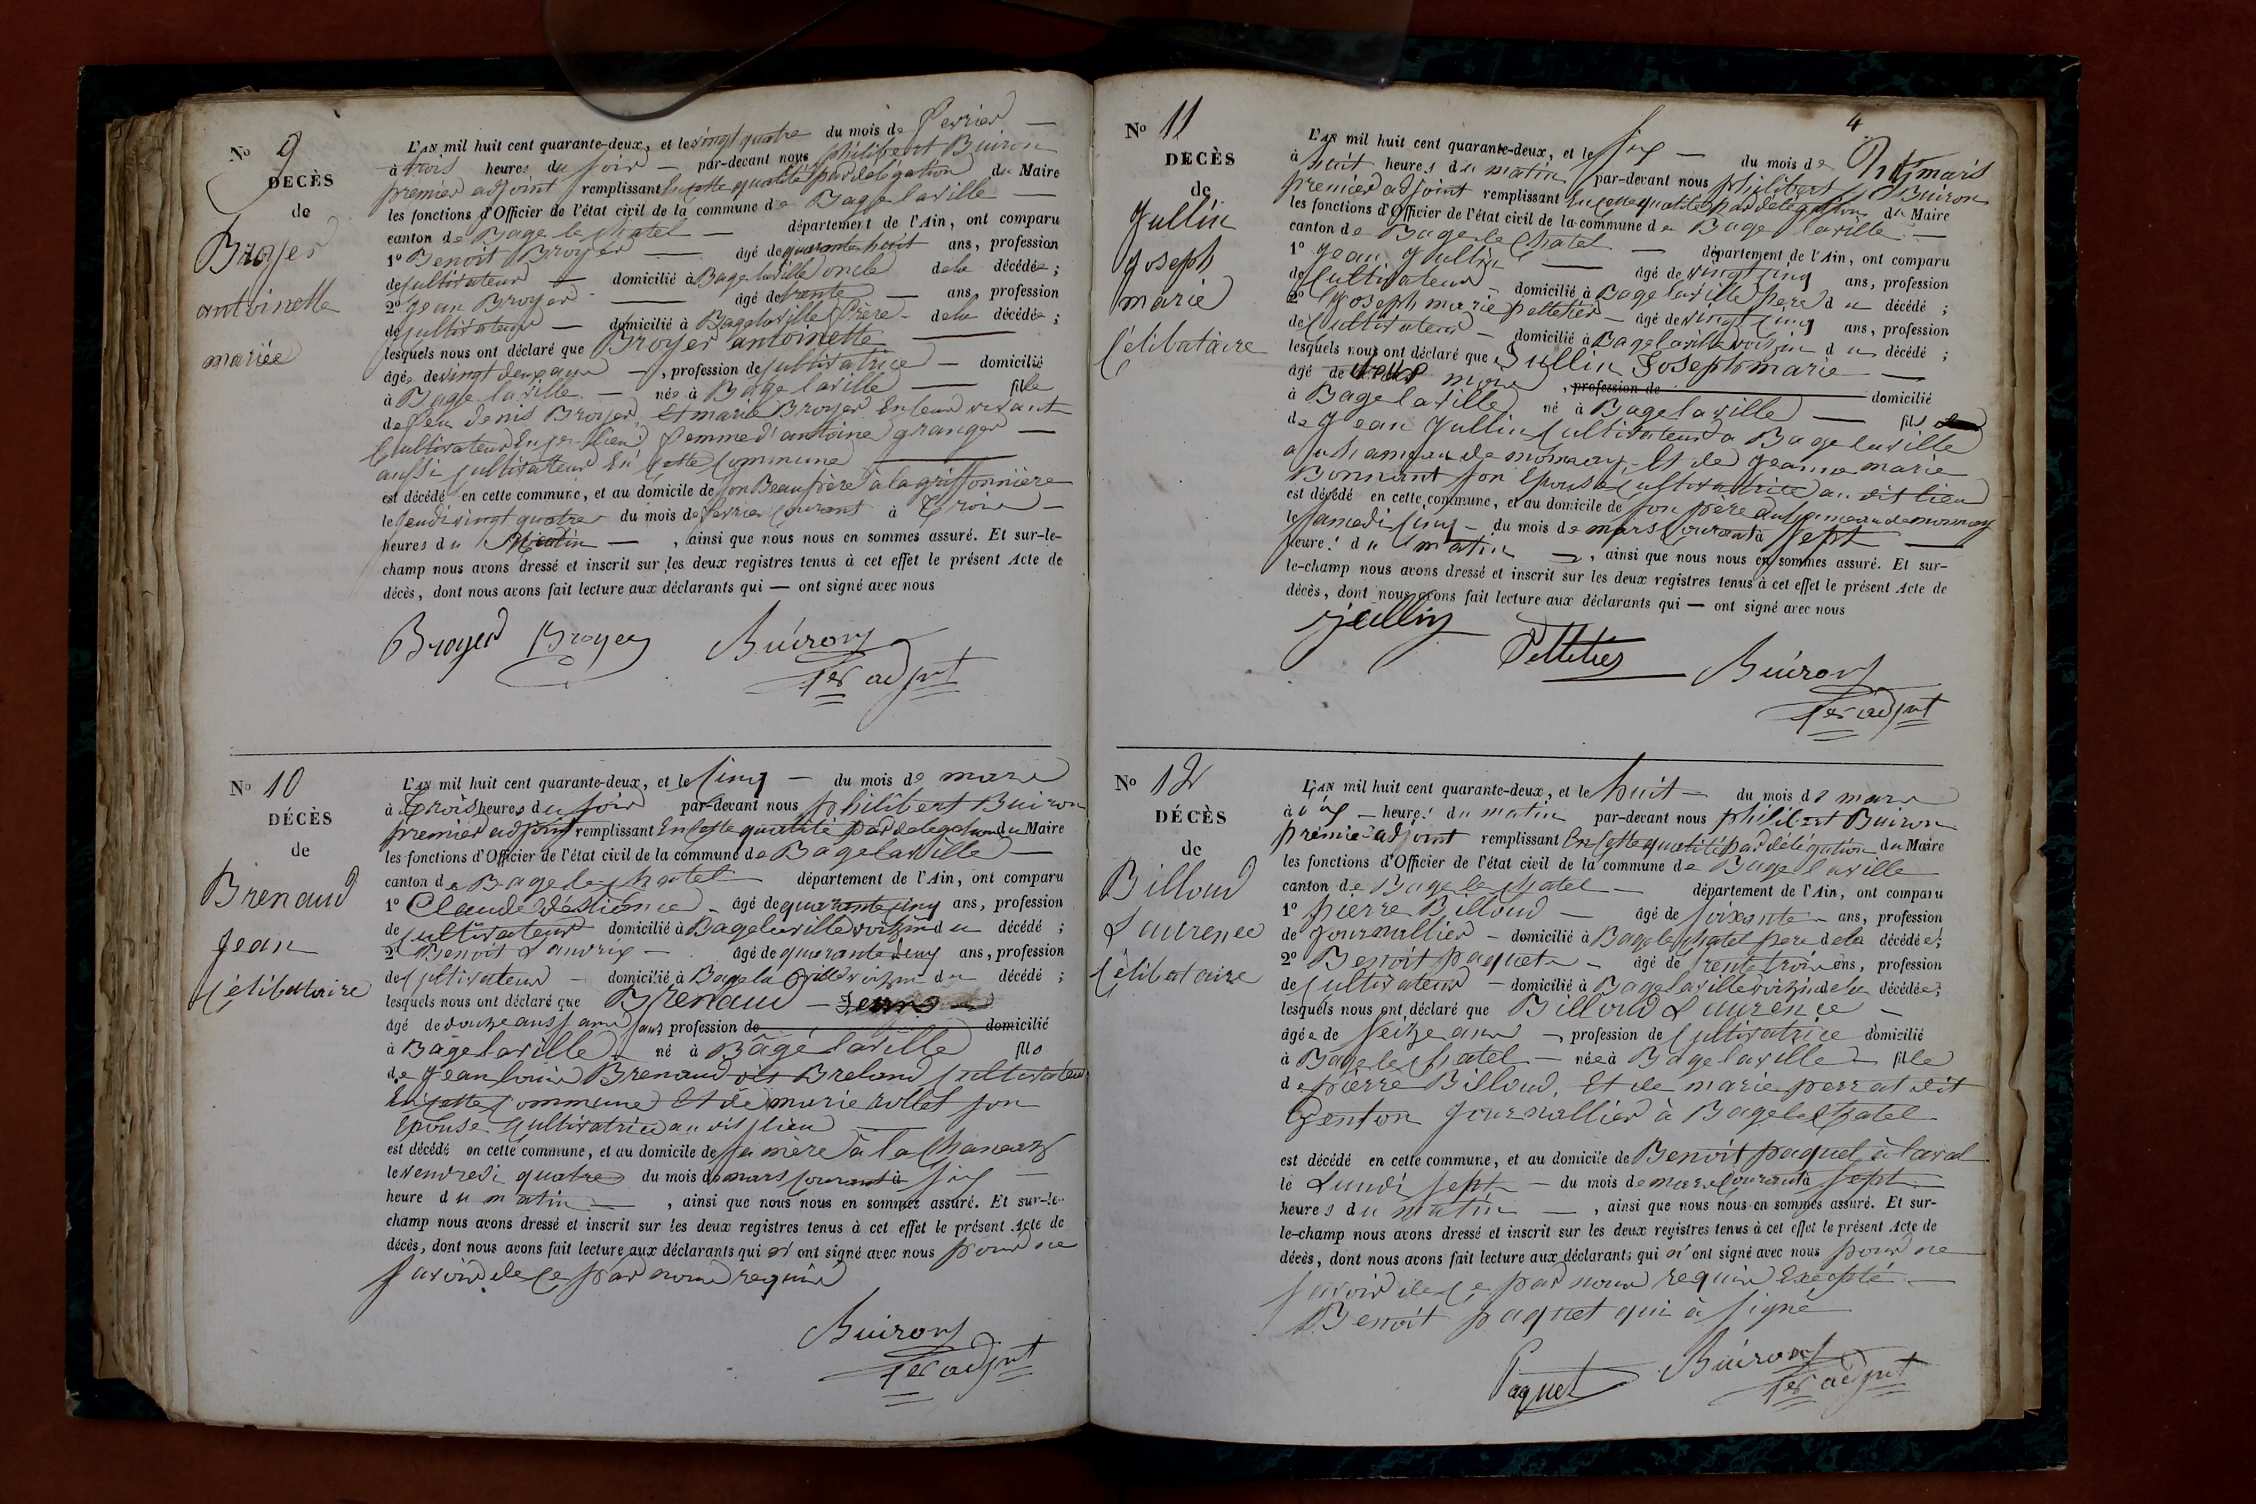 No 9
DECÈS
de
Broyer
antoinette
mariée
L'AN mil huit cent quarante-deux, et le vingt quatre du mois de fevrier —
à trois heures du soir — par-devant nous philibert Buiron
premier adjoint remplissant En cette qualité par délégation du Maire
les fonctions d'Officier de l'état civil de la commune de Bage la ville —
canton de Bage le chatel — département de l'Ain, ont comparu
1o Benoit Broyer — âgé de quarante huit ans, profession
de cultivateur — domicilié à Bage la ville oncle de la décédée ;
2o Jean Broyer — âgé de trente — ans, profession
de cultivateur — domicilié à Bage la ville frère — de la décédée ;
lesquels nous ont déclaré que Broyer antoinette —
âgée de vingt deux ans —, profession de cultivatrice — domicilié
à Bage la ville — née à Bage la ville — fille
de feu denis Broyer, et marie Broyer En leur vivant
Cultivateurs En ce lieu ; femme d'antoine granger —
aussi cultivateur En cette commune —
est décédé en cette commune, et au domicile de son Beaufrère à la griffonnière
le jeudi vingt quatre du mois de fevrier courant à Trois —
heures du Matin —, ainsi que nous nous en sommes assuré. Et sur-le-
champ nous avons dressé et inscrit sur les deux registres tenus à cet effet le présent Acte de
décès, dont nous avons fait lecture aux déclarants qui — ont signé avec nous
Broyer Broyer Buiron
1er adjnt
No 10
DÉCÈS
de
Brenaud
Jean
Célibataire
L'AN mil huit cent quarante-deux, et le Cinq — du mois de mars
à Trois heures du soir par-devant nous philibert Buiron
premier adjoint remplissant En cette qualité par delegation du Maire
les fonctions d'Officier de l'état civil de la commune de Bage la ville —
canton de Bage le chatel — département de l'Ain, ont comparu
1o Claude — âgé de quarante cinq ans, profession
de cultivateur domicilié à Bage la ville voisin du décédé ;
2o Benoit — âgé de quarante deux ans, profession
de cultivateur — domicilié à Bage la ville voisin du décédé ;
lesquels nous ont déclaré que Brenaud —
âgé de douze ans sans profession de domicilié
à Bage la ville — né à Bâgé la ville fils
de Jean louis Brenaud dit Breland cultivateur
En cette commune Et de marie rollet son
Epouse Cultivatrice au dit lieu —
est décédé en cette commune, et au domicile de sa mère à la
le vendredi quatre du mois de mars courant à six —
heure du matin —, ainsi que nous nous en sommes assuré. Et sur-le-
champ nous avons dressé et inscrit sur les deux registres tenus à cet effet le présent Acte de
décès, dont nous avons fait lecture aux déclarants qui n'ont signé avec nous pour ne
savoir de ce par nous requis
Buiron
1er adjnt
4
No 11
DECÈS
de
Jullin
Joseph
marie
Célibataire
L'AN mil huit cent quarante-deux, et le six — du mois de mars
à huit heures du matin par-devant nous philibert Buiron
premier adjoint remplissant En cette qualité par délégation du Maire
les fonctions d'Officier de l'état civil de la commune de Bage la ville —
canton de Bage le Chatel — département de l'Ain, ont comparu
1o Jean Jullin — âgé de vingt cinq ans, profession
de Cultivateur — domicilié à Bage la ville père du décédé ;
2o Joseph marie pelletier — âgé de vingt cinq ans, profession
de Cultivateur — domicilié à Bage la ville voisin du décédé ;
lesquels nous ont déclaré que Jullin Joseph marie —
âgé de mois, profession de domicilié
à Bage la ville né à Bage la ville — fils
de Jean Jullin Cultivateur a Bage la ville
au hameau de Et de Jeanne marie
Bonnant son Epouse Cultivatrice au dit lieu
est décédé en cette commune, et au domicile de son pere au hameau de
le samedi cinq — du mois de mars courant à sept —
heures du matin —, ainsi que nous nous en sommes assuré. Et sur-
le-champ nous avons dressé et inscrit sur les deux registres tenus à cet effet le présent Acte de
décès, dont nous avons fait lecture aux déclarants qui — ont signé avec nous
Jullin
Pelletier Buiron
1er adjnt
No 12
DÉCÈS
de
Billoud
Laurence
Célibataire
L'AN mil huit cent quarante-deux, et le huit — du mois de mars
à dix — heures du matin par-devant nous philibert Buiron
premier adjoint remplissant En cette qualité par délégation du Maire
les fonctions d'Officier de l'état civil de la commune de Bage la ville
canton de Bage le chatel — département de l'Ain, ont comparu
1o pierre Billoud — âgé de soixante — ans, profession
de Journallier — domicilié à Bage le chatel pere de la décédée ;
2o Benoit paquet — âgé de trente trois ans, profession
de cultivateur — domicilié à Bage la ville voisin de la décédée ;
lesquels nous ont déclaré que Billoud Laurence —
âgée de seize ans —, profession de Cultivatrice domicilié
à Bage le chatel — née à Bage la ville — fille
de pierre Billoud, Et de marie perrat dit
Genton Journallier à Bage le Chatel
est décédé en cette commune, et au domicile de Benoit paquet à laval
le Lundi sept — du mois de mars courant à sept —
heures du matin —, ainsi que nous nous en sommes assuré. Et sur-
le-champ nous avons dressé et inscrit sur les deux registres tenus à cet effet le présent Acte de
décès, dont nous avons fait lecture aux déclarants qui n'ont signé avec nous pour ne
savoir de ce par nous requis Excepté —
Benoit paquet qui à signé
Paquet Buiron
1er adjnt